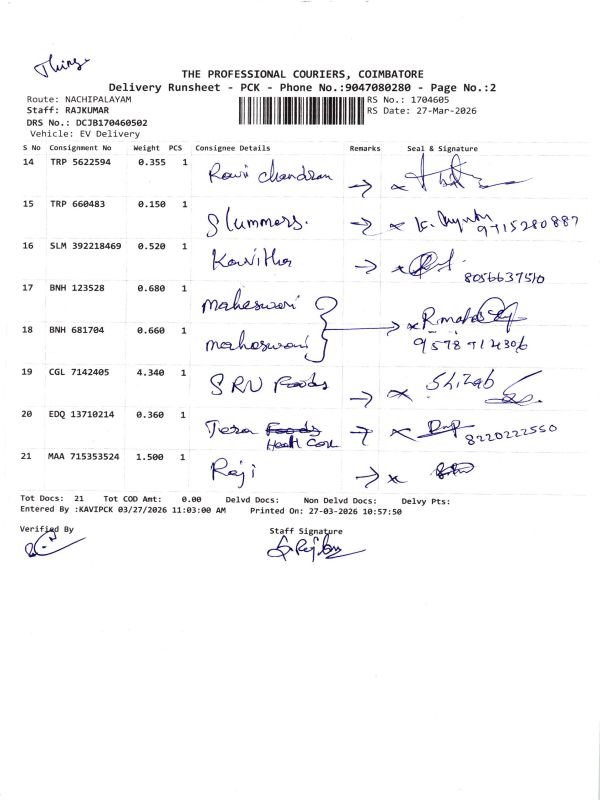 THE PROFESSIONAL COURIERS, COIMBATORE
Delivery Runsheet - PCK - Phone No.:9047080280 - Page No.:2
Route: NACHIPALAYAM RS No.: 1704605
Staff: RAJKUMAR RS Date: 27-Mar-2026
DRS No.: DCJB170460502
Vehicle: EV Delivery
S No Consignment No Weight PCS Consignee Details Remarks Seal & Signature
14 TRP 5622594 0.355 1 Ravi chandran
15 TRP 660483 0.150 1 Slummers. 9715280887
16 SLM 392218469 0.520 1 Kavitha 8056637510
17 BNH 123528 0.680 1 Maheswari
18 BNH 681704 0.660 1 maheswari
19 CGL 7142405 4.340 1 SRN Foods
20 EDQ 13710214 0.360 1 Tera Foods 8220222550
Healt Care
21 MAA 715353524 1.500 1 Raji
Tot Docs: 21 Tot COD Amt: 0.00 Delvd Docs: Non Delvd Docs: Delvy Pts:
Entered By :KAVIPCK 03/27/2026 11:03:00 AM Printed On: 27-03-2026 10:57:50
Verified By Staff Signature